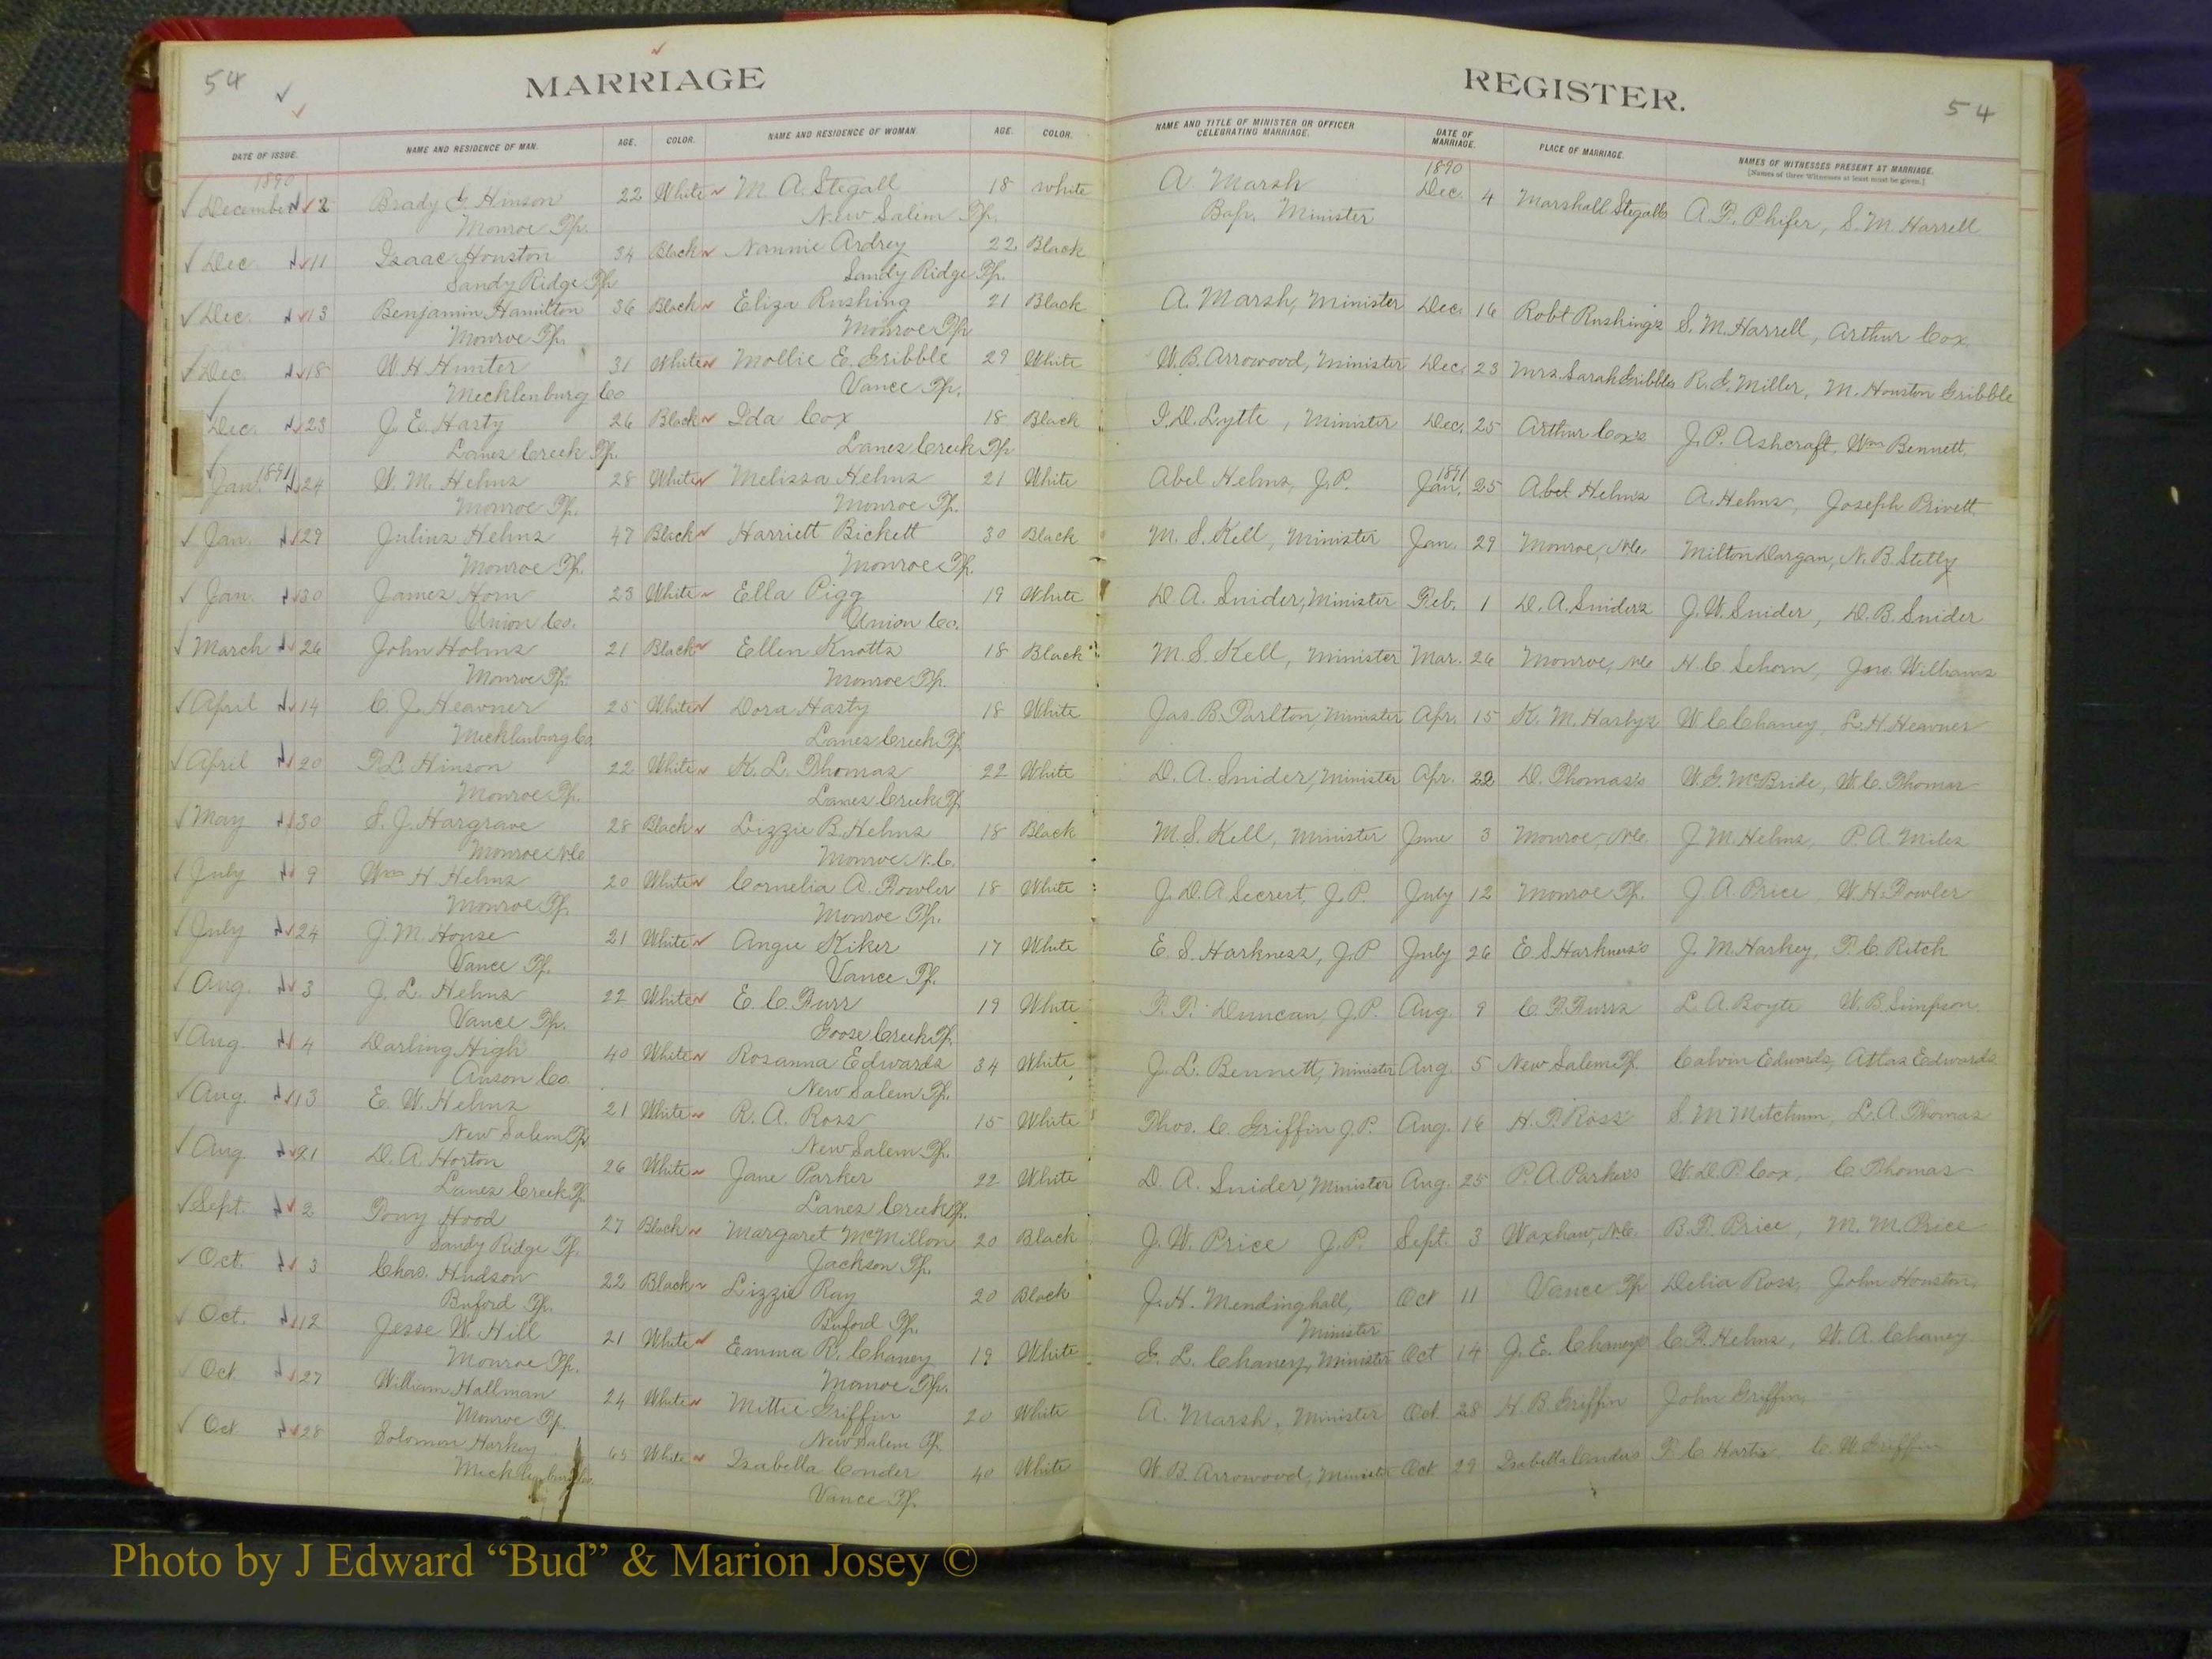 54
MARRIAGE
REGISTER.
54
DATE OF ISSUE. NAME AND RESIDENCE OF MAN. AGE. COLOR. NAME AND RESIDENCE OF WOMAN. AGE. COLOR. NAME AND TITLE OF MINISTER OR OFFICER CELEBRATING MARRIAGE. DATE OF MARRIAGE. PLACE OF MARRIAGE. NAMES OF WITNESSES PRESENT AT MARRIAGE.
[Names of three Witnesses at least must be given.]
1890 1890
December 2 Brady G. Hinson 22 White M. A. Stegall 18 White A. Marsh Dec. 4 Marshall Stegalls A. R. Phifer, S. M. Harrell
Monroe Tp. New Salem Tp. Bap. Minister
Dec. 11 Isaac Houston 34 Black Nannie Ardrey 22 Black
Sandy Ridge Tp. Sandy Ridge Tp.
Dec. 13 Benjamin Hamilton 36 Black Eliza Rushing 21 Black A. Marsh, Minister Dec. 16 Robt Rushing's S. M. Harrell, Arthur Cox
Monroe Tp. Monroe Tp.
Dec. 18 W H Hunter 31 White Mollie E. Gribble 29 White W. B. Arrowood, Minister Dec. 23 Mrs. Sarah Gribbles R. G. Miller, M. Houston Gribble
Mecklenburg Co Vance Tp.
Dec. 23 J. E. Hasty 26 Black Ida Cox 18 Black I. D. Lytle, Minister Dec. 25 Arthur Cox's J. P. Ashcraft, Wm Bennett.
Lanes Creek Tp. Lanes Creek Tp
1891 1891
Jan. 24 W. M. Helms 28 White Melissa Helms 21 White Abel Helms, J. P. Jan. 25 Abel Helms A. Helms, Joseph Privett
Monroe Tp. Monroe Tp.
Jan. 29 Julius Helms 47 Black Harriett Bickett 30 Black M. S. Kell, Minister Jan. 29 Monroe, N.C. Milton Dargan, N. B.
Monroe Tp. Monroe Tp.
Jan. 30 James Horn 23 White Ella Pigg 19 White D. A. Snider, Minister Feb. 1 D. A. Sniders J. W. Snider, D. B. Snider
Union Co. Union Co.
March 26 John Holms 21 Black Ellen Knotts 18 Black M. S. Kell, Minister Mar. 26 Monroe, N.C. H. C. Sehorn, Jno. Williams
Monroe Tp. Monroe Tp.
April 14 C. J. Heavner 25 White Dora Hasty 18 White Jas. B. Tarlton, Minister Apr. 15 K. M. Hasty's W. C. Chaney, L. H. Heavner
Mecklenburg Co Lanes Creek Tp
April 20 T. L. Hinson 22 White K. L. Thomas 22 White D. A. Snider, Minister Apr. 22 D. Thomas's W. G. McBride, W. C. Thomas
Monroe Tp. Lanes Creek Tp
May 30 S. J. Hargrave 28 Black Lizzie B. Helms 18 Black M. S. Kell, Minister June 3 Monroe, N.C. J. M. Helms, P. A. Miles
Monroe N.C Monroe N.C.
July 9 Wm H Helms 20 White Cornelia A. Fowler 18 White J. D. A. Secrest, J. P. July 12 Monroe Tp. J. A. Price, W. H. Fowler
Monroe Tp. Monroe Tp.
July 24 J. M. House 21 White Angie Kiker 17 White E. S. Harkness, J. P July 26 E S Harkness's J. M. Harkey, T. C. Ritch
Vance Tp. Vance Tp.
Aug. 3 J. L. Helms 22 White E. C. Furr 19 White T. F. Duncan, J. P. Aug. 9 C. F. Furrs L. A. Boyte W. B. Simpson
Vance Tp. Goose Creek Tp.
Aug. 4 Darling High 40 White Rosanna Edwards 34 White J. L. Bennett, Minister Aug. 5 New Salem Tp. Calvin Edwards, Atlas Edwards
Anson Co. New Salem Tp.
Aug. 13 E. W. Helms 21 White R. A. Ross 15 White Thos. C. Griffin J. P. Aug. 16 H. T. Ross' S. M Mitchum, L. A. Thomas
New Salem Tp New Salem Tp.
Aug. 21 D. A. Horton 26 White Jane Parker 22 White D. A. Snider, Minister Aug. 25 P. A. Parkers W. D. P. Cox, C. Thomas
Lanes Creek Tp Lanes Creek Tp.
Sept. 2 Pony Hood 27 Black Margaret McMillon 20 Black J. W. Price J. P. Sept. 3 Waxhaw, N.C. B. F. Price, M. M. Price
Sandy Ridge Tp. Jackson Tp.
Oct. 3 Chas. Hudson 22 Black Lizzie Ray 20 Black J. H. Mendinghall, Oct 11 Vance Tp Delia Ross, John Houston,
Buford Tp. Buford Tp. Minister
Oct. 12 Jesse W. Hill 21 White Emma R. Chaney 19 White G. L. Chaney, Minister Oct 14 J. E. Chaneys C. F. Helms, W. A. Chaney
Monroe Tp. Monroe Tp.
Oct. 27 William Hallman 24 White Mittie Griffin 20 White A. Marsh, Minister Oct. 28 H. B. Griffin John Griffin,
Monroe Tp New Salem Tp
Oct 28 Solomon Harkey 65 White Isabella Conder 40 White W. B. Arrowood, Minister Oct 29 Isabella Conders F. C. C. W. Griffin
Mecklenburg Co. Vance Tp.
Photo by J Edward “Bud” & Marion Josey ©